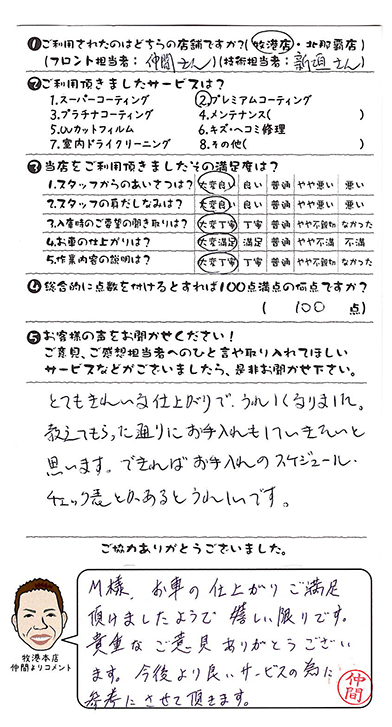 ❶ご利用されたのはどちらの店舗ですか?(牧港店・北那覇店)
(フロント担当者: 仲間さん)(技術担当者: 新垣さん)
❷ご利用頂きましたサービスは?
1.スーパーコーティング ②.プレミアムコーティング
3.プラチナコーティング 4.メンテナンス( )
5.UVカットフィルム 6.キズ・ヘコミ修理
7.室内ドライクリーニング 8.その他( )
❸当店をご利用頂きましたその満足度は?
1.スタッフからのあいさつは? 大変良い 良い 普通 やや悪い 悪い
2.スタッフの身だしなみは? 大変良い 良い 普通 やや悪い 悪い
3.入庫時のご要望の聞き取りは? 大変丁寧 丁寧 普通 やや不親切 なかった
4.お車の仕上がりは? 大変満足 満足 普通 やや不満 不満
5.作業内容の説明は? 大変丁寧 丁寧 普通 やや不親切 なかった
❹総合的に点数を付けるとすれば100点満点の何点ですか?
( 100 点)
❺お客様の声をお聞かせください!
ご意見、ご感想担当者へのひと言や取り入れてほしい
サービスなどがございましたら、是非お聞かせ下さい。
とてもきれいな仕上がりで、うれしくなりました。
教えてもらった通りにお手入れもしていきたいと
思います。できればお手入れのスケジュール・
チェック表とかあるとうれしいです。
ご協力ありがとうございました。
M様、お車の仕上がりご満足
頂けましたようで嬉しい限りです。
貴重なご意見ありがとうござい
ます。今後より良いサービスの為に
参考にさせて頂きます。
仲間
牧港本店
仲間よりコメント